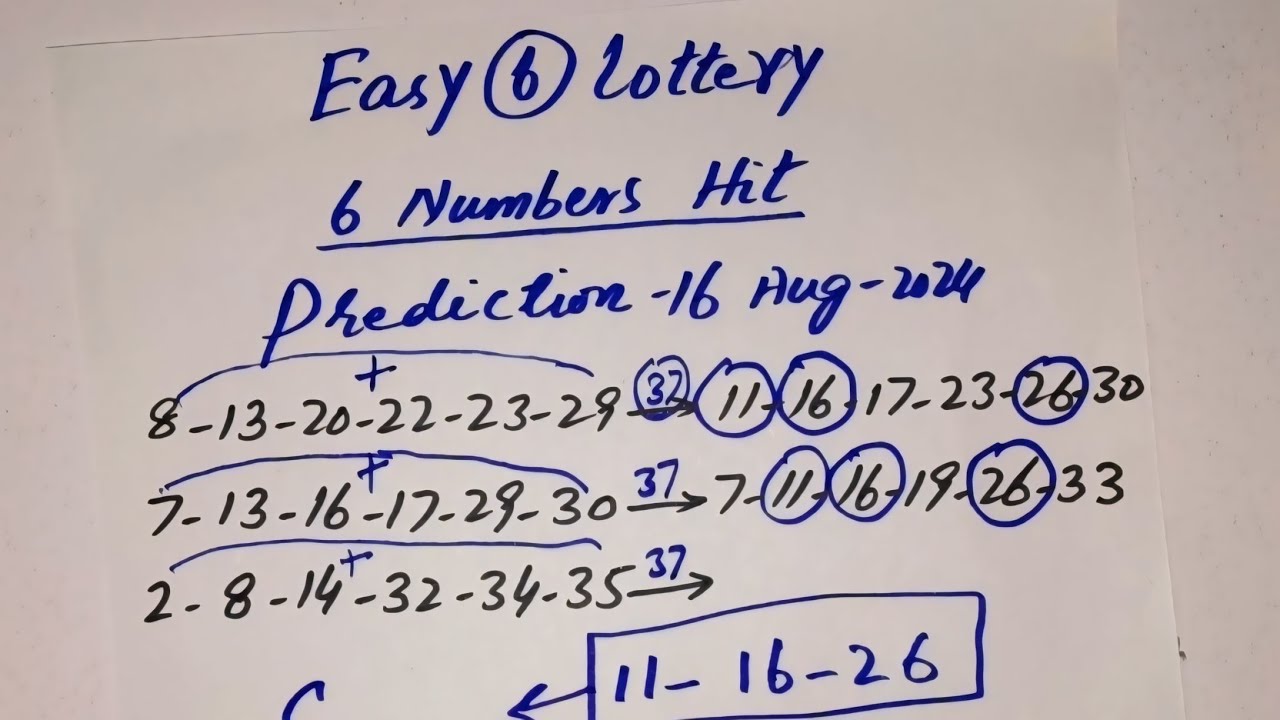 Easy 6 Lottery
6 Numbers Hit
Prediction - 16 Aug - 2024
+
8 - 13 - 20 - 22 - 23 - 29 37 → 11 - 16 - 17 - 23 - 26 - 30
+
7 - 13 - 16 - 17 - 29 - 30 37 → 7 - 11 - 16 - 19 - 26 - 33
+
2 - 8 - 14 - 32 - 34 - 35 37 →
← 11 - 16 - 26